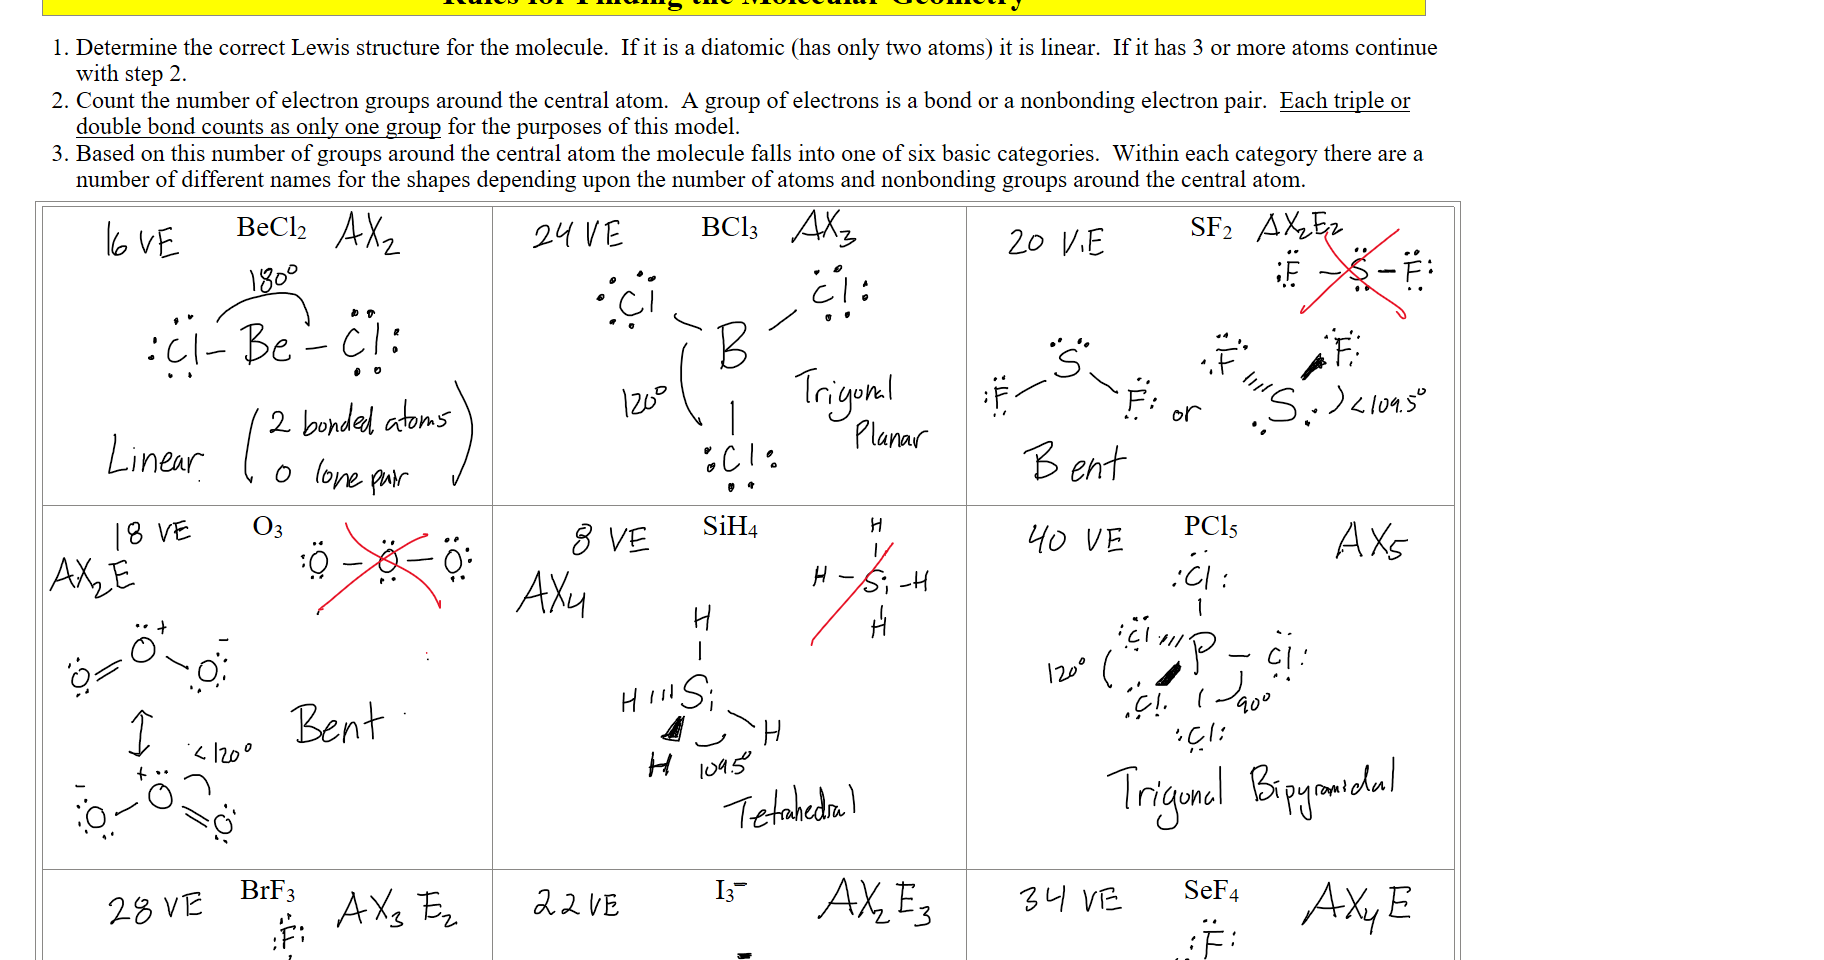 Rules for Finding the Molecular Geometry
1. Determine the correct Lewis structure for the molecule.  If it is a diatomic (has only two atoms) it is linear.  If it has 3 or more atoms continue
with step 2.
2. Count the number of electron groups around the central atom.  A group of electrons is a bond or a nonbonding electron pair.  Each triple or
double bond counts as only one group for the purposes of this model.
3. Based on this number of groups around the central atom the molecule falls into one of six basic categories.  Within each category there are a
number of different names for the shapes depending upon the number of atoms and nonbonding groups around the central atom.
16 VE BeCl₂ AX₂
180°
:Cl – Be – Cl:
Linear
(2 bonded atoms
0 lone pair)
24 VE BCl₃ AX₃
Cl Cl:
B
120°
:Cl:
Trigonal
Planar
20 V.E SF₂ AX₂E₂
:F – S – F:
S
:F F:
or
F F:
S <109.5°
Bent
18 VE O₃
AX₂E
:O – O – O:
O⁺
O = O⁻
<120°
⁻O – O⁺ = O
Bent
8 VE SiH₄
AX₄
H
H – Si – H
H
H
H Si
H H
109.5°
Tetrahedral
40 VE PCl₅ AX₅
:Cl:
:Cl P – Cl:
120°
:Cl. 90°
:Cl:
Trigonal Bipyramidal
28 VE BrF₃ AX₃E₂
:F:
22 VE I₃⁻ AX₂E₃
34 VE SeF₄ AX₄E
:F: